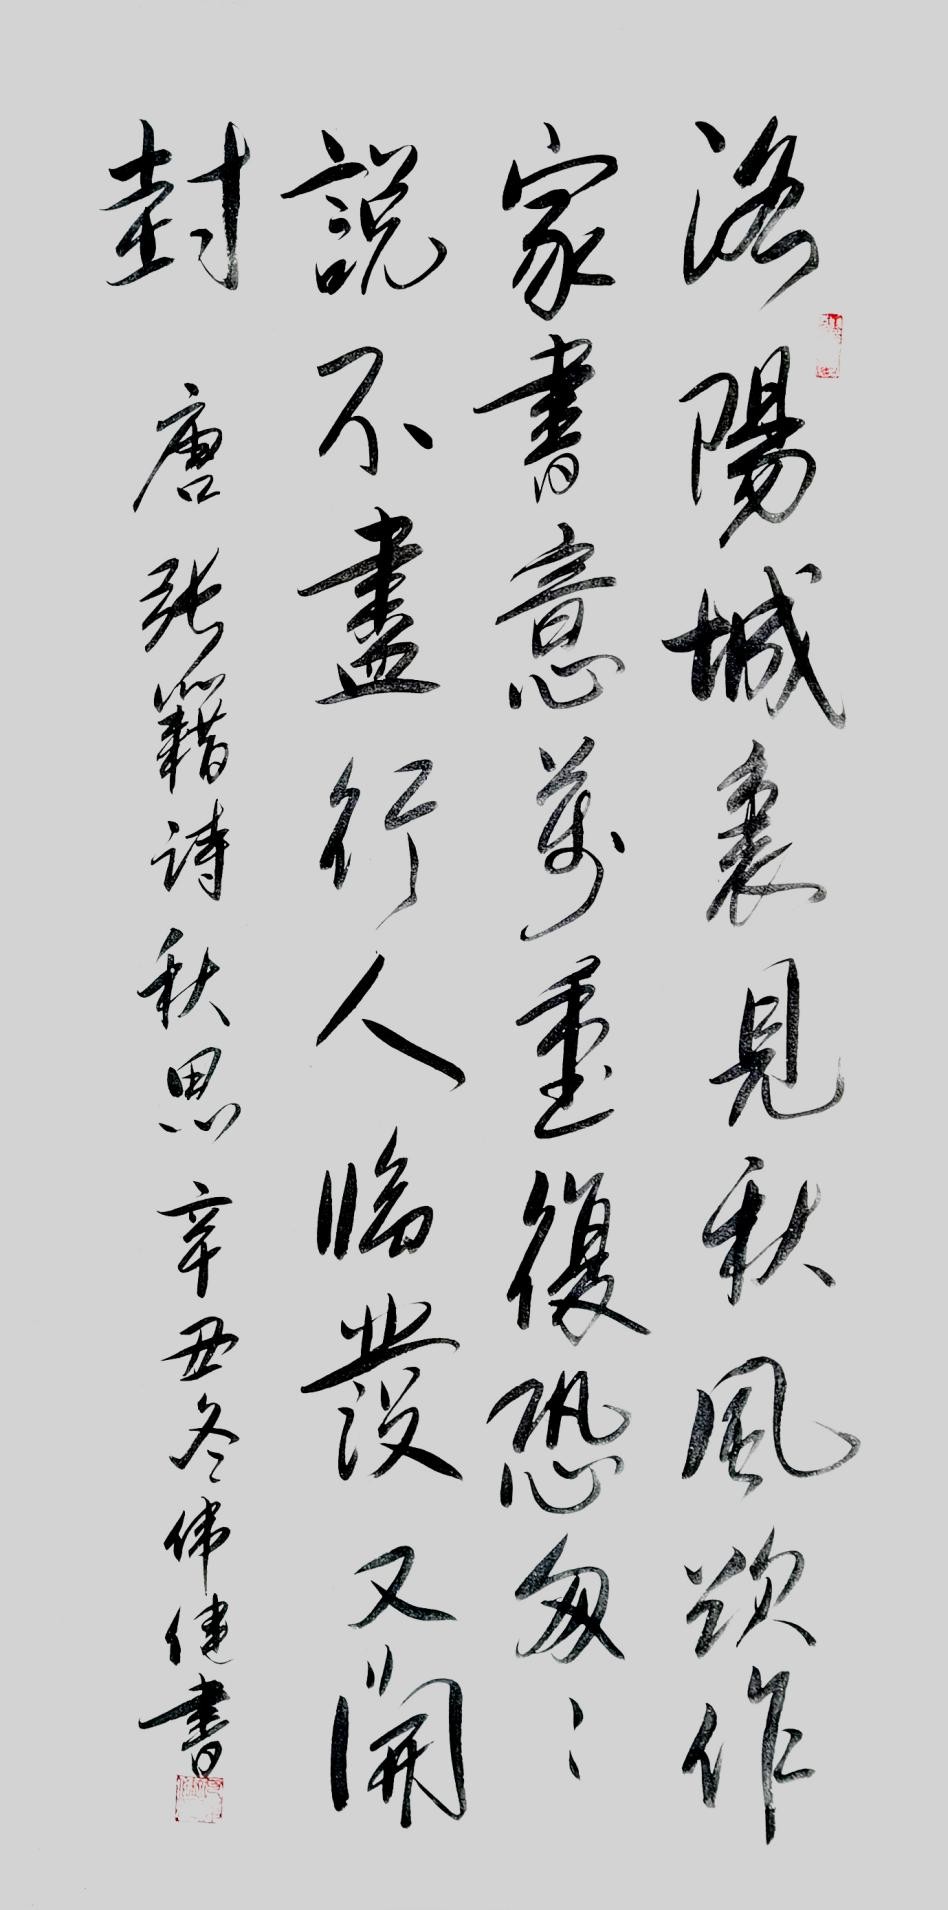 洛陽城裏見秋風欲作
家書意萬重復恐匆〻
說不盡行人臨發又開
封
唐 張籍詩秋思 辛丑冬伟健書